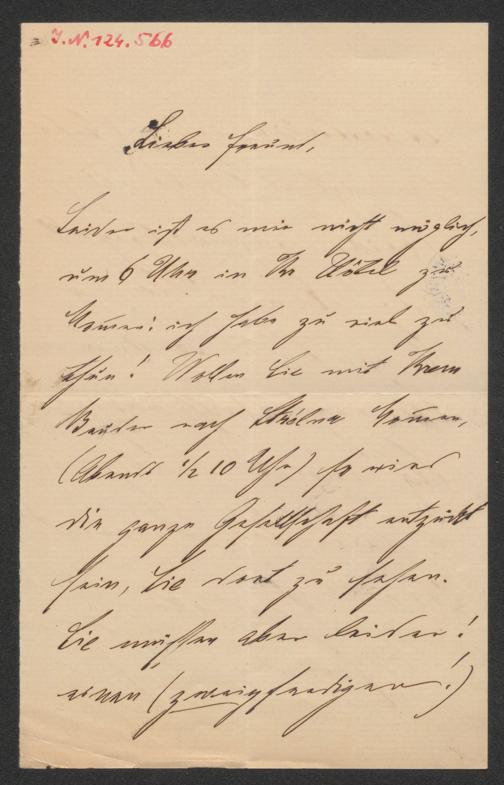 J.N. 124.566
Lieber Freund,
Leider ist es mir nicht möglich,
um 6 Uhr in Ihr Hôtel zu
kom̄en: ich habe zu viel zu
thun! Wollen Sie mit Ihrem
Bruder nach kom̄en,
(Abends ½ 10 Uhr) so wird
die ganze Gesellschaft entzückt
sein, Sie dort zu sehen.
Sie müssen aber leider!
einen (zweispferdigen!)